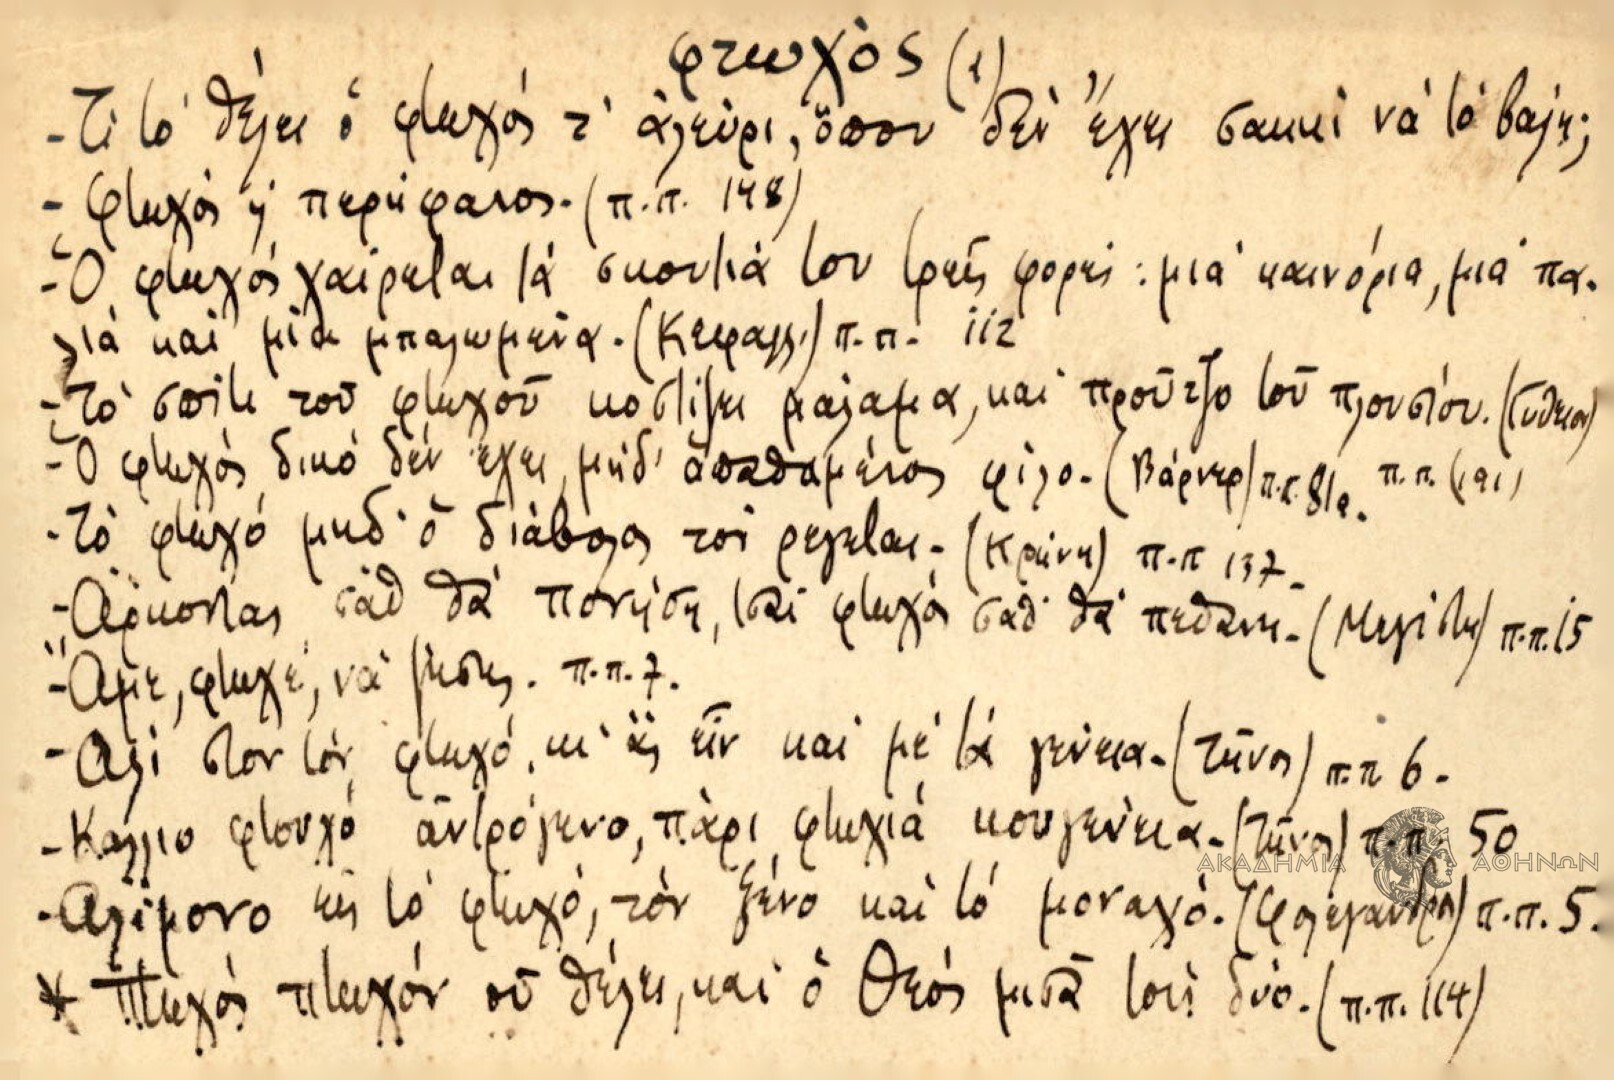 φτωχὸς (1)
- Τί τό θέλει ὁ φτωχός τ' ἀλεύρι, ὅπου δέν ἔχει σακκί νά τό βάλῃ;
- Φτωχός ἤ περήφανος. (π.π. 148)
- Ὁ φτωχός χαίρεται τά σκουτιά του τρεῖς φορές: μιά καινόρια, μιά πα-
λιά καί μία μπαλωμένα. (Κεφαλλ.) π.π. 112
- Τό σπίτι τοῦ φτωχοῦ κοστίζει μάλαμα, καί προῦτζο τοῦ πλουσίου. (Γύθειον)
- Ὁ φτωχός δικό δέν ἔχει, μηδ' ἀπεθαμένος φίλο. (Βάρνερ) π.π. 81α. π.π.
- Τό φτωχό μηδ' ὁ διάβολος τοῦ ρέγεται. (Κρήνη) π.π 137
- Ἄρκοντας σάθ θά πονήσῃ, τσαί φτωχός σάθ θά πεθάνῃ. (Μεγίστη) π.π. 15
- Ἄμε, φτωχέ, νά ζήσῃς. π.π. 7.
- Ἀλί στον τόν φτωχό, κι' ἄς εἶν καί μέ τά γένεια. (Τῆνος) π.π 6.
- Κάλλιο φτουχό ἀντρόγενο, πάρι φτωχιά κουγένεια. (Τῆνος) π.π. 50
- Ἀλίμονο εἰς τό φτωχό, τόν ξένο καί τό μοναχό. (Φολέγανδρος) π.π. 5.
* Πτωχός πτωχόν οὐ θέλει, καί ὁ Θεός μισᾶ τούς δύο. (π.π. 114)
ΑΚΑΔΗΜΙΑ ΑΘΗΝΩΝ